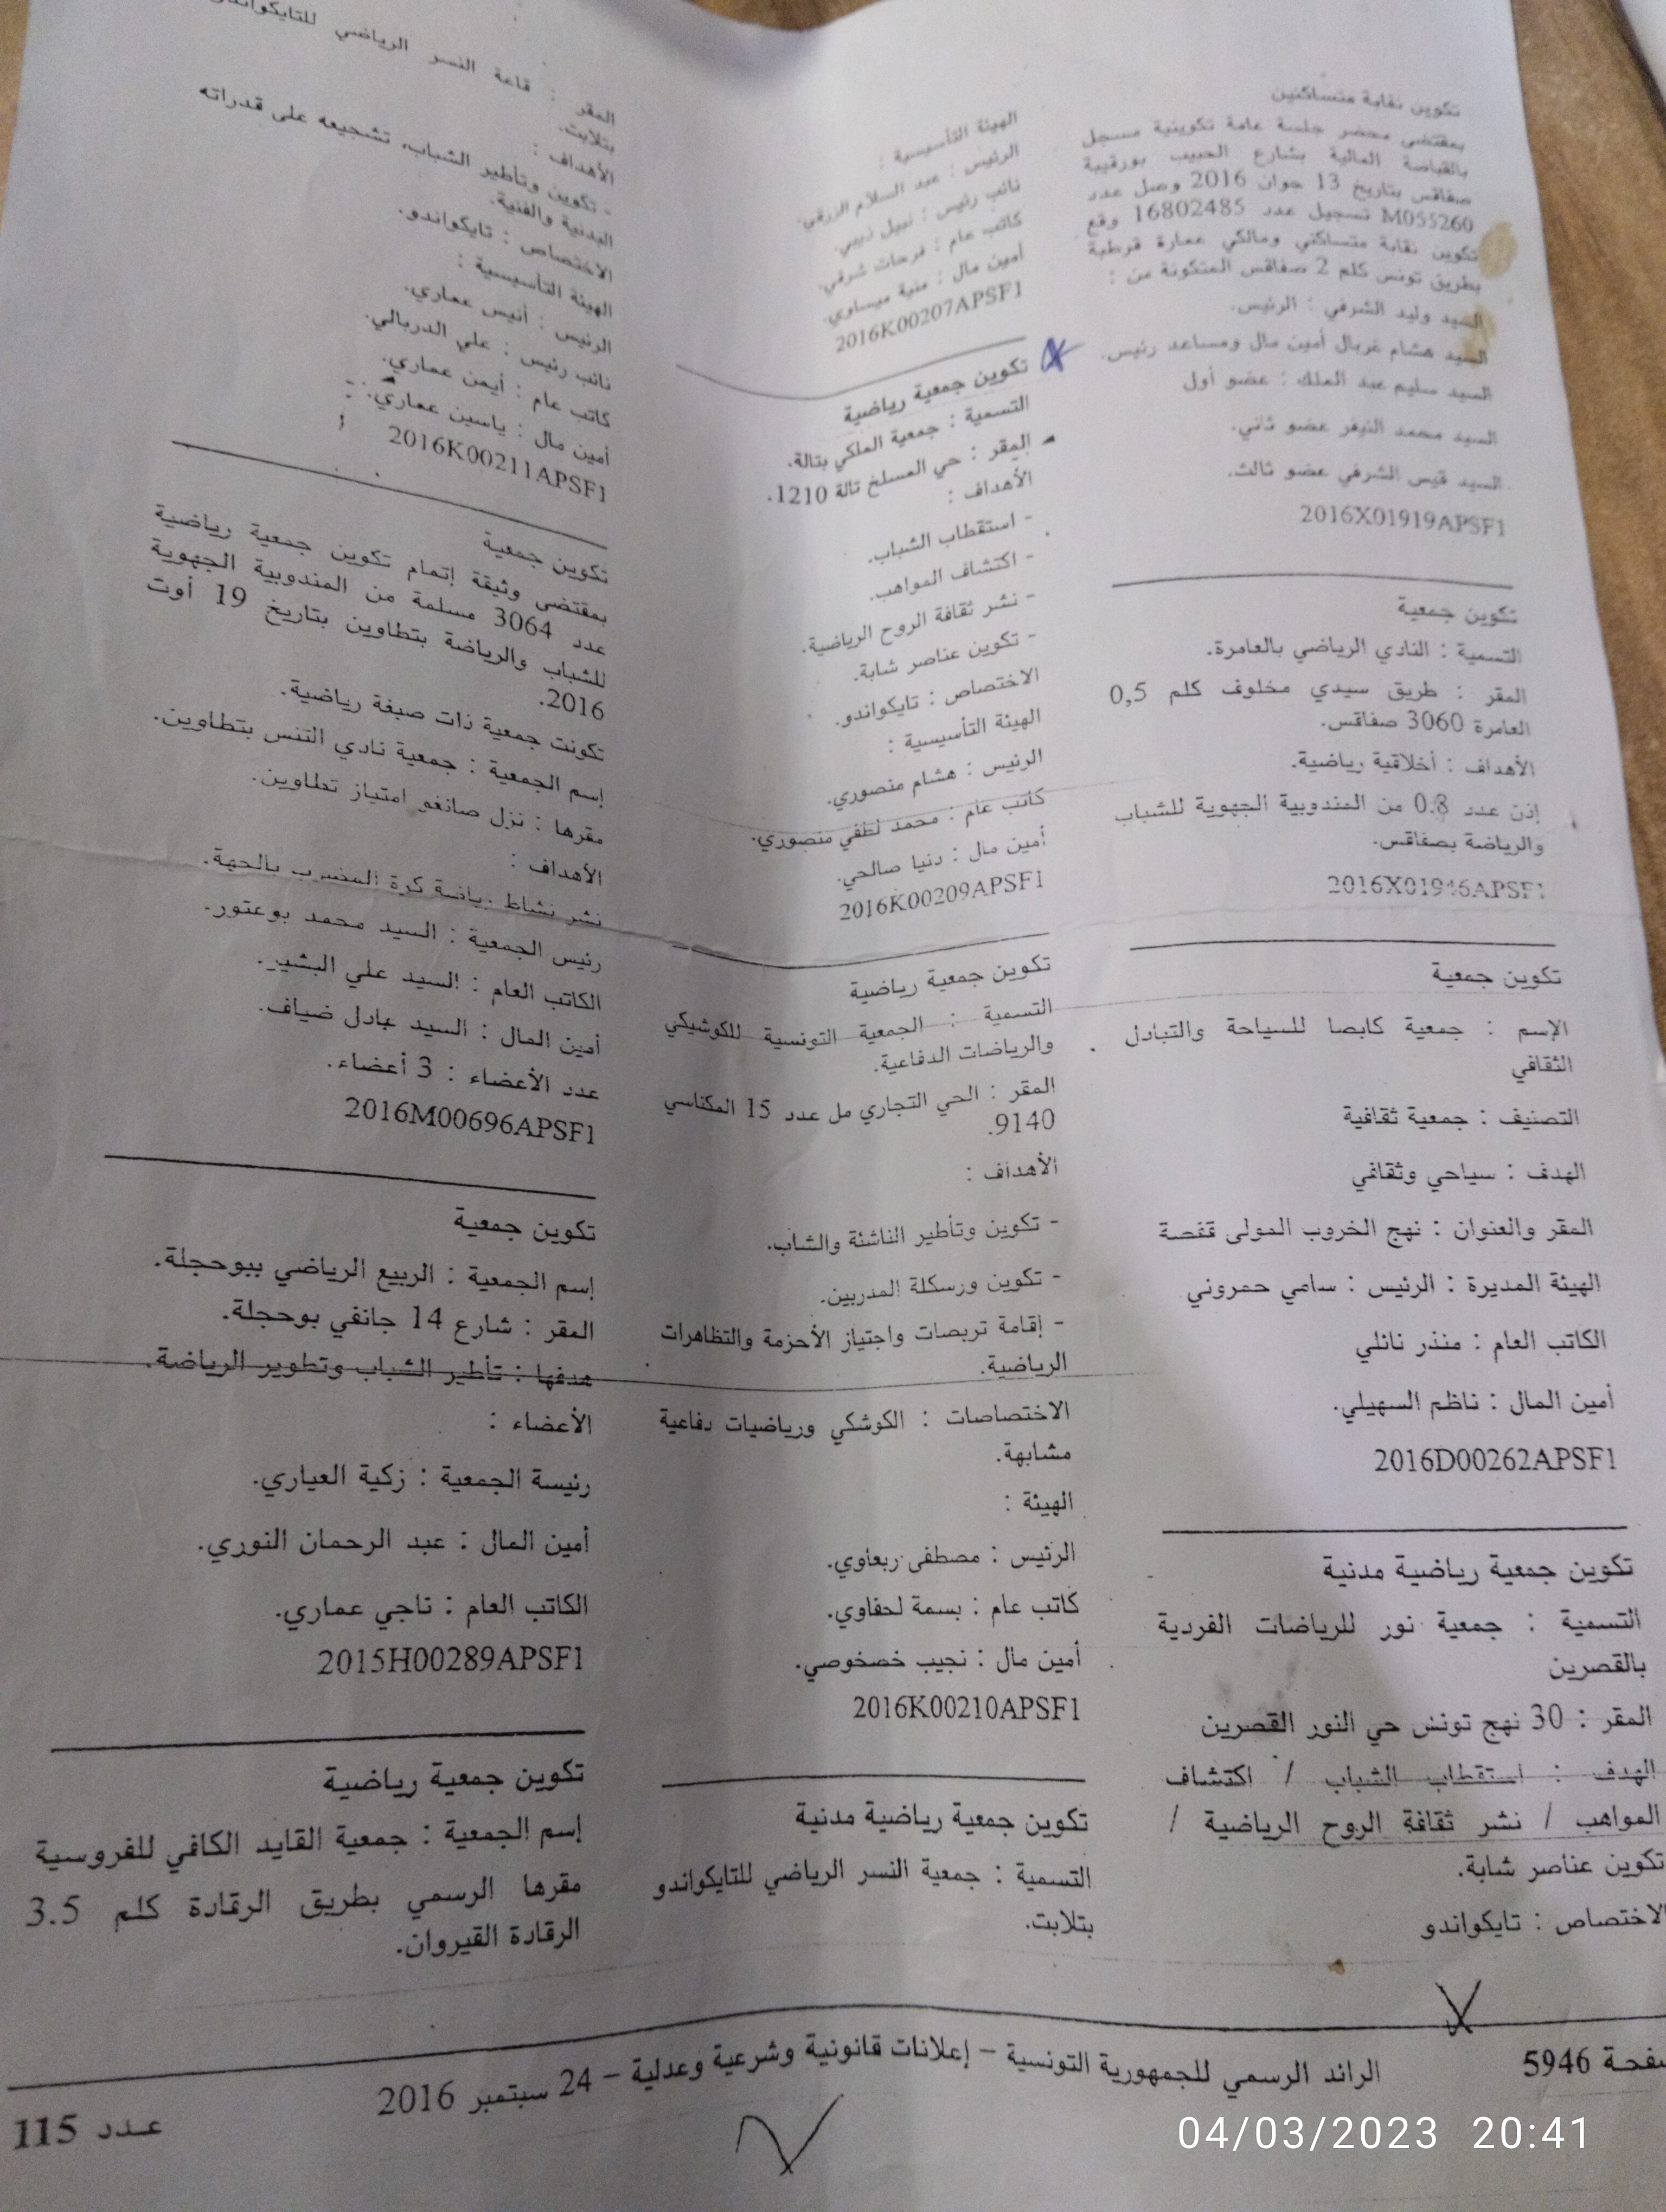 تكوين نقابة متساكنين
بمقتضى محضر جلسة عامة تكوينية مسجل
بالقباضة المالية بشارع الحبيب بورقيبة
صفاقس بتاريخ 13 جوان 2016 وصل عدد
M055260 تسجيل عدد 16802485 وقع
تكوين نقابة متساكني ومالكي عمارة قرطبة
بطريق تونس كلم 2 صفاقس المتكونة من :
السيد وليد الشرفي : الرئيس.
السيد هشام غربال أمين مال ومساعد رئيس.
السيد سليم عبد الملك : عضو أول
السيد محمد النيفر عضو ثاني.
السيد قيس الشرفي عضو ثالث.
2016X01919APSF1
تكوين جمعية
التسمية : النادي الرياضي بالعامرة.
المقر : طريق سيدي مخلوف كلم 0,5
العامرة 3060 صفاقس.
الأهداف : أخلاقية رياضية.
إذن عدد 0.8 من المندوبية الجهوية للشباب
والرياضة بصفاقس.
2016X01946APSF1
تكوين جمعية
الإسم : جمعية كابصا للسياحة والتبادل
الثقافي
التصنيف : جمعية ثقافية
الهدف : سياحي وثقافي
المقر والعنوان : نهج الخروب المولى قفصة
الهيئة المديرة : الرئيس : سامي حمروني
الكاتب العام : منذر نائلي
أمين المال : ناظم السهيلي.
2016D00262APSF1
تكوين جمعية رياضية مدنية
التسمية : جمعية نور للرياضات الفردية
بالقصرين
المقر : 30 نهج تونس حي النور القصرين
الهدف : استقطاب الشباب / اكتشاف
المواهب / نشر ثقافة الروح الرياضية /
تكوين عناصر شابة.
الاختصاص : تايكواندو
الهيئة التأسيسية :
الرئيس : عبد السلام الزرقي.
نائب رئيس : نبيل ذيبي.
كاتب عام : فرحات شرفي.
أمين مال : منية ميساوي.
2016K00207APSF1
تكوين جمعية رياضية
التسمية : جمعية الملكي بتالة.
المقر : حي المسلخ تالة 1210.
الأهداف :
- استقطاب الشباب.
- اكتشاف المواهب.
- نشر ثقافة الروح الرياضية.
- تكوين عناصر شابة.
الاختصاص : تايكواندو.
الهيئة التأسيسية :
الرئيس : هشام منصوري.
كاتب عام : محمد لطفي منصوري.
أمين مال : دنيا صالحي.
2016K00209APSF1
تكوين جمعية رياضية
التسمية : الجمعية التونسية للكوشيكي
والرياضات الدفاعية.
المقر : الحي التجاري مل عدد 15 المكناسي
9140.
الأهداف :
- تكوين وتأطير الناشئة والشاب.
- تكوين ورسكلة المدربين.
- إقامة تربصات واجتياز الأحزمة والتظاهرات
الرياضية.
الاختصاصات : الكوشكي ورياضيات دفاعية
مشابهة.
الهيئة :
الرئيس : مصطفى ربعاوي.
كاتب عام : بسمة لحفاوي.
أمين مال : نجيب خصخوصي.
2016K00210APSF1
تكوين جمعية رياضية مدنية
التسمية : جمعية النسر الرياضي للتايكواندو
بتلابت.
المقر : قاعة النسر الرياضي للتايكواندو
بتلابت.
الأهداف :
- تكوين وتأطير الشباب، تشجيعه على قدراته
البدنية والفنية.
الاختصاص : تايكواندو.
الهيئة التأسيسية :
الرئيس : أنيس عماري.
نائب رئيس : علي الدربالي.
كاتب عام : أيمن عماري.
أمين مال : ياسين عماري.
2016K00211APSF1
تكوين جمعية
بمقتضى وثيقة إتمام تكوين جمعية رياضية
عدد 3064 مسلمة من المندوبية الجهوية
للشباب والرياضة بتطاوين بتاريخ 19 أوت
2016.
تكونت جمعية ذات صبغة رياضية.
إسم الجمعية : جمعية نادي التنس بتطاوين.
مقرها : نزل صانغو امتياز تطاوين.
الأهداف :
نشر نشاط رياضة كرة المضرب بالجهة.
رئيس الجمعية : السيد محمد بوعتور.
الكاتب العام : السيد علي البشير.
أمين المال : السيد عادل ضياف.
عدد الأعضاء : 3 أعضاء.
2016M00696APSF1
تكوين جمعية
إسم الجمعية : الربيع الرياضي ببوحجلة.
المقر : شارع 14 جانفي بوحجلة.
هدفها : تأطير الشباب وتطوير الرياضة.
الأعضاء :
رئيسة الجمعية : زكية العياري.
أمين المال : عبد الرحمان النوري.
الكاتب العام : ناجي عماري.
2015H00289APSF1
تكوين جمعية رياضية
إسم الجمعية : جمعية القايد الكافي للفروسية
مقرها الرسمي بطريق الرقادة كلم 3.5
الرقادة القيروان.
صفحة 5946
الرائد الرسمي للجمهورية التونسية – إعلانات قانونية وشرعية وعدلية – 24 سبتمبر 2016
عـدد 115
04/03/2023 20:41